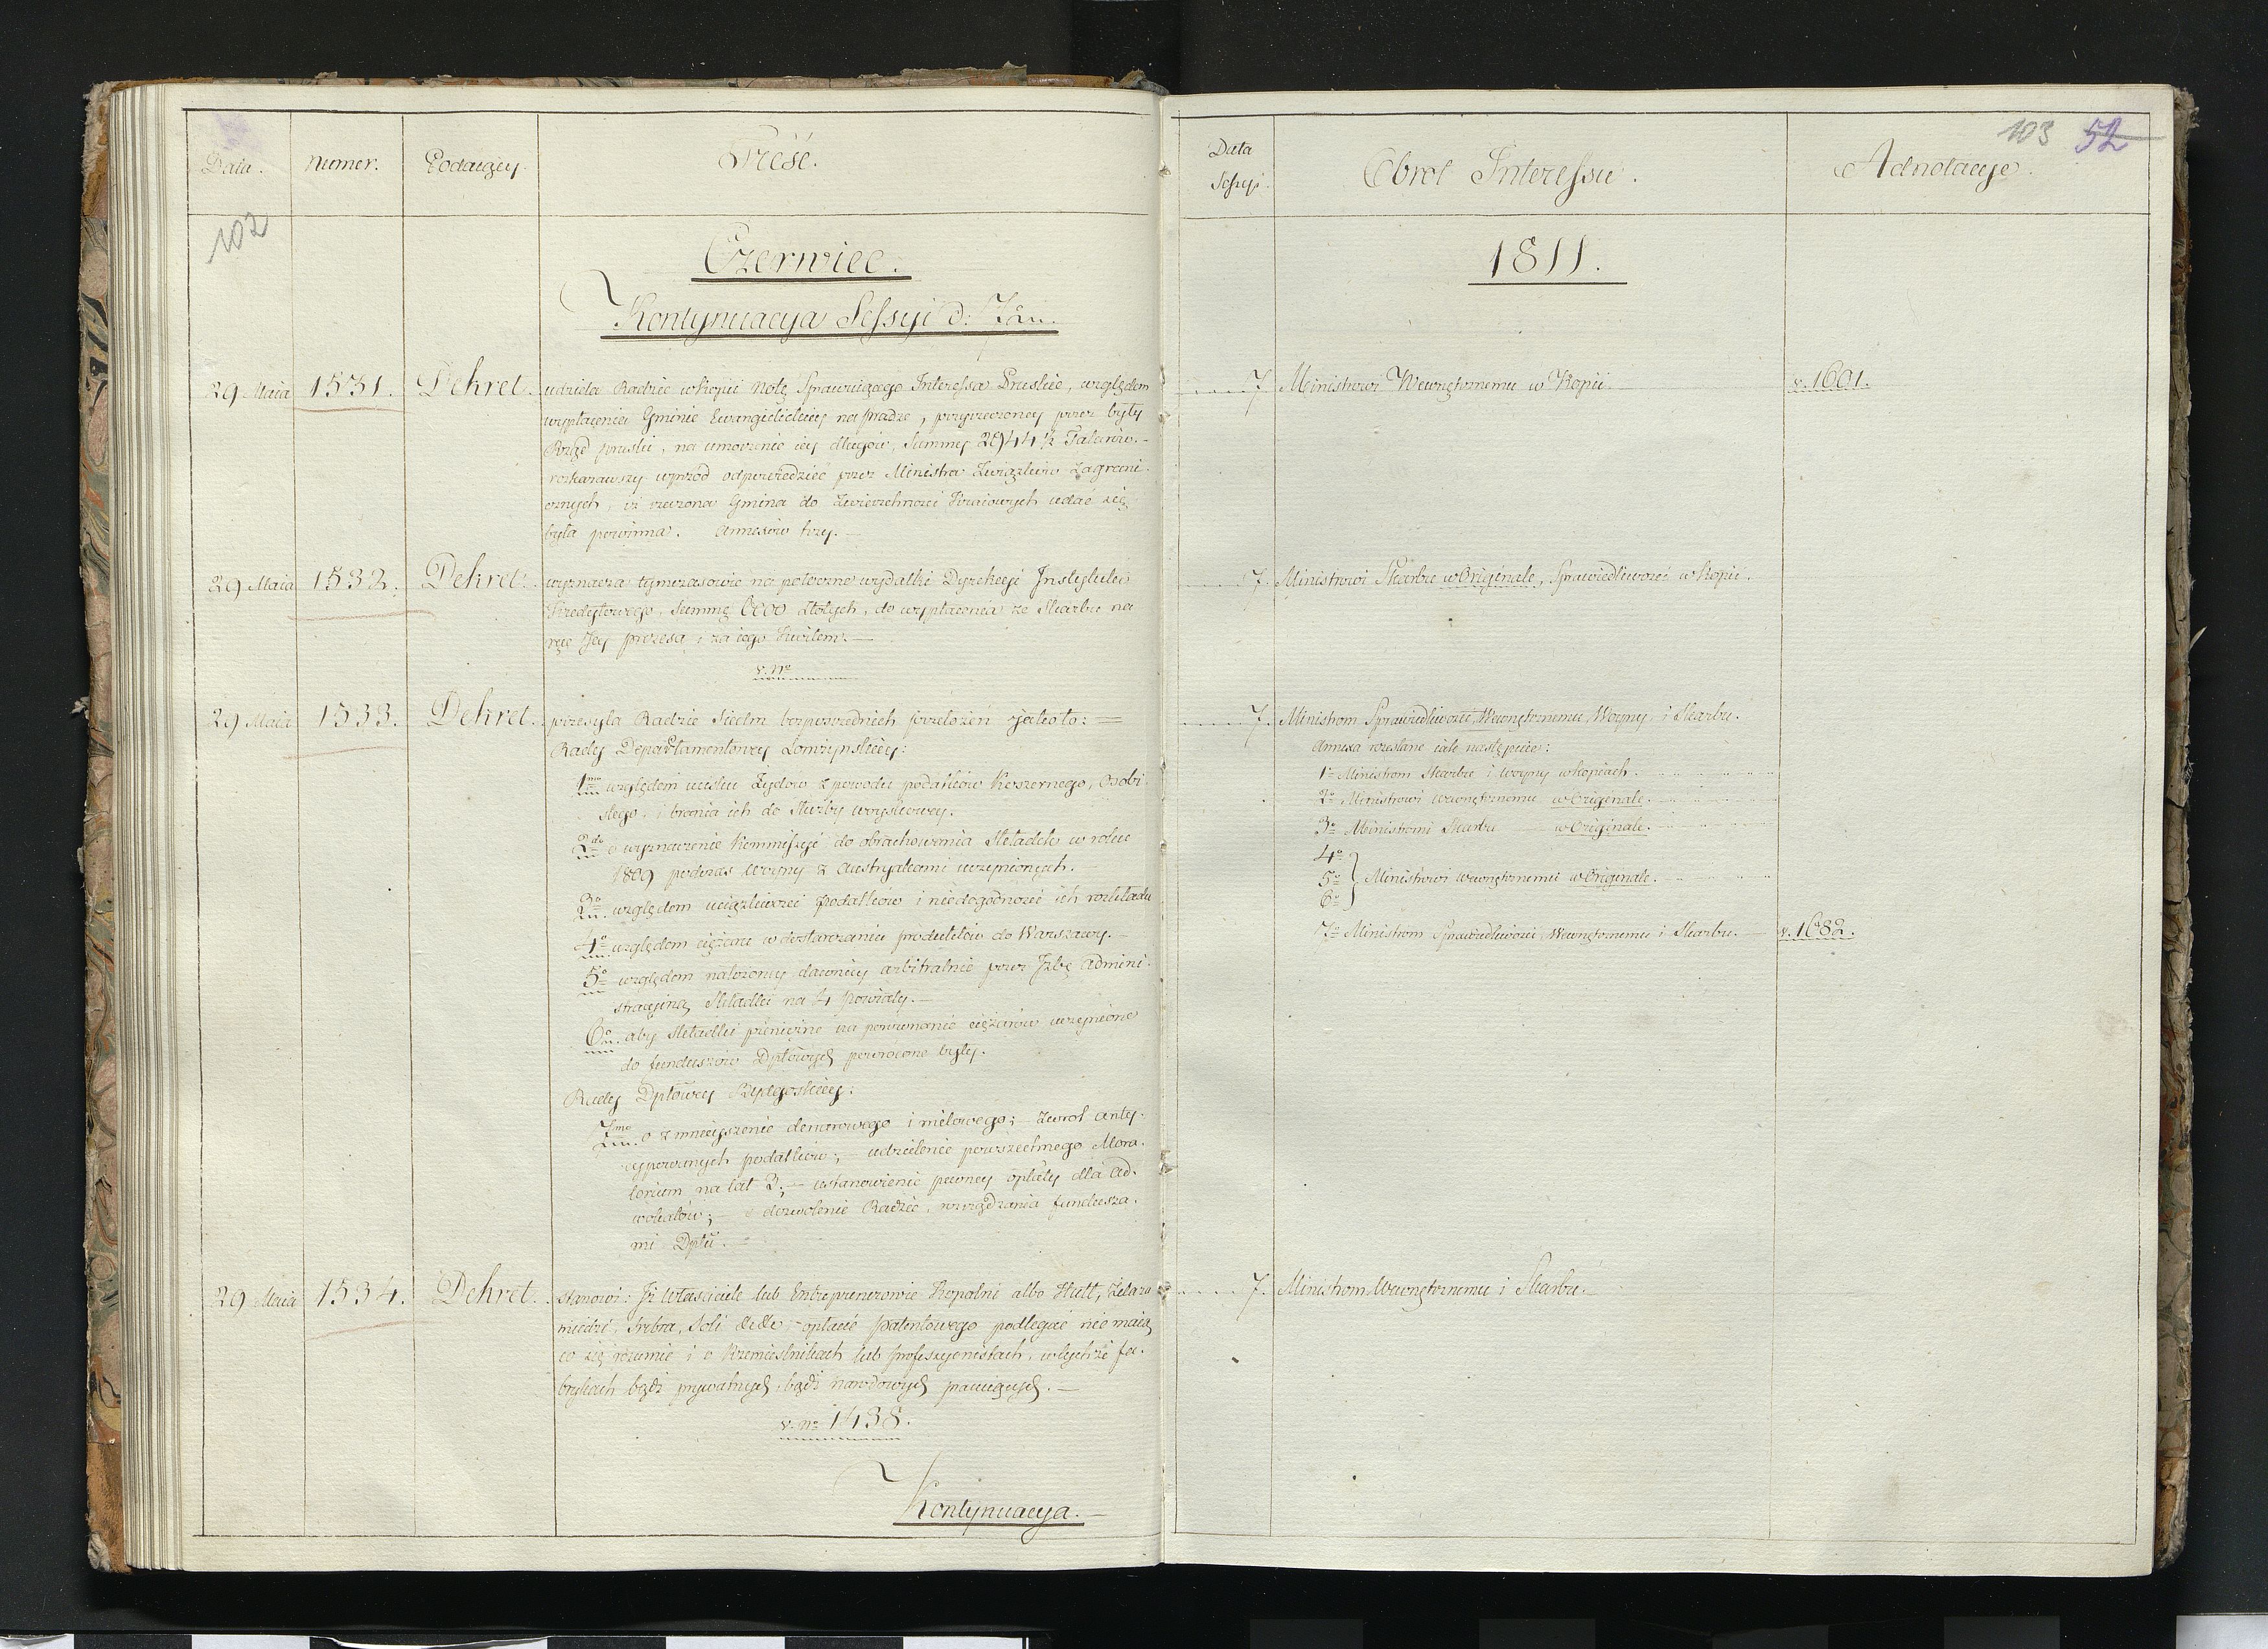 Data.
Numer.
Podaiący.
Treść.
102
Czerwiec.
Kontynuacya Sessyi d: 7 Iun.
29 Maia 1531. Dekret. udziela Radzie w kopii Notę Sprawuiącego Interessa Pruskie, względem
wypłacenia Gminie Ewangielickiey na Pradze, przyrzeczoney przez były
Rząd pruski, na umorzenie iey długów, Summy 2944½ Talarów. –
rozkazawszy wprzód odpowiedzieć przez Ministra Związków Zagrani-
cznych, iż rzeczona Gmina do Zwierzchności Kraiowych udać się
była powinna. Annexów trzy. –
29 Maia 1532. Dekret. wyznacza tymczasowie na potoczne wydatki Dyrekcyi Instytutu
Kredytowego, Summę 6000 Złotych, do wypłacenia ze Skarbu na
ręce Jey prezesa i za iego kwitem. –
v. No
29 Maia 1533. Dekret. przesyła Radzie Siedm bezpośrednich przełożeń jakoto: =
Rady Departamentowey Łomżyńskiey:
1mo względem ucisku Żydów z powodu podatków Koszernego, Osobi-
stego, i brania ich do Służby woyskowey.
2do o wyznaczenie Kommissyi do obrachowania Składek w roku
1809 podczas woyny z Austryakami uczynionych.
3o względem uciążliwości podatków i niedogodności ich rozkładu
4o względem ciężaru w dostarczaniu produktów do Warszawy. –
5o względem nałożoney dawniey arbitralnie przez Izbę Admini-
stracyiną Składki na 4 powiaty. –
6o aby składki pieniężne na porównanie ciężarów uczynione
do funduszów Dptowych powrócone były.
Rady Dptowey Bydgoskiey:
7mo o zmnieyszenie denarowego i milowego; – zwrot anty-
cypowanych podatków; – udzielenie powszechnego Mora-
torium na lat 3; – ustanowienie pewney opłaty dla Ad-
wokatów; – i dozwolenie Radzie, rozrządzania fundusza-
mi Dptu. –
29 Maia 1534. Dekret. stanowi: Iż Właściciele lub Entreprenerowie Kopalni albo Hutt, Żelaza
miedzi, Srebra, Soli &c &c opłacie patentowego podlegać nie maią
co się rozumie i o Rzemieślnikach lub professyonistach, w tychże fa-
brykach bądź prywatnych, bądź narodowych pracuiących. –
v. No 1438.
Kontynuacya. –
Data
Sessyi.
Obrot Interessu.
Adnotacye.
103 52
1811.
7 Ministrowi Wewnętrznemu w Kopii. v. 1601.
7. Ministrowi Skarbu w Originale, Sprawiedliwości w kopii.
7. Ministrom Sprawiedliwości, Wewnętrznemu, Woyny i Skarbu.
Annexa rozesłane iak następuie:
1o Ministrom Skarbu i Woyny w kopiach.
2o Ministrowi wewnętrznemu w Originale.
3o Ministrowi Skarbu w Originale.
4o
5o } Ministrowi wewnętrznemu w Originale.
6o
7o Ministrom Sprawiedliwości, Wewnętrznemu i Skarbu. – v. 1682.
7. Ministrom Wewnętrznemu i Skarbu. –